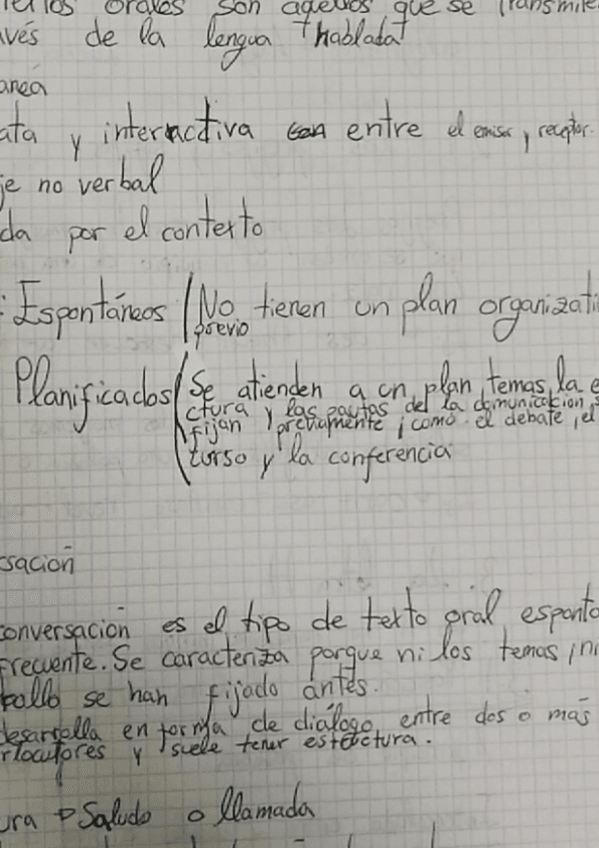 los orales son aquellos que se transmite
avés de la lengua "hablada"
anea
ata y interactiva entre el emisor y receptor.
je no verbal
da por el contexto
: Espontáneos No tienen un plan organizati
previo
Planificados Se atienden a un plan, temas, la e
ctura y las pautas del la comunicacion s
fijan previamente ; como el debate, el
curso y la conferencia
sación
conversación es el tipo de texto oral esponta
frecuente. Se caracteriza porque ni los temas, ni
rollo se han fijado antes.
desarrolla en forma de diálogo entre dos o más
rlocutores y suele tener estructura.
ura → Saludo o llamada